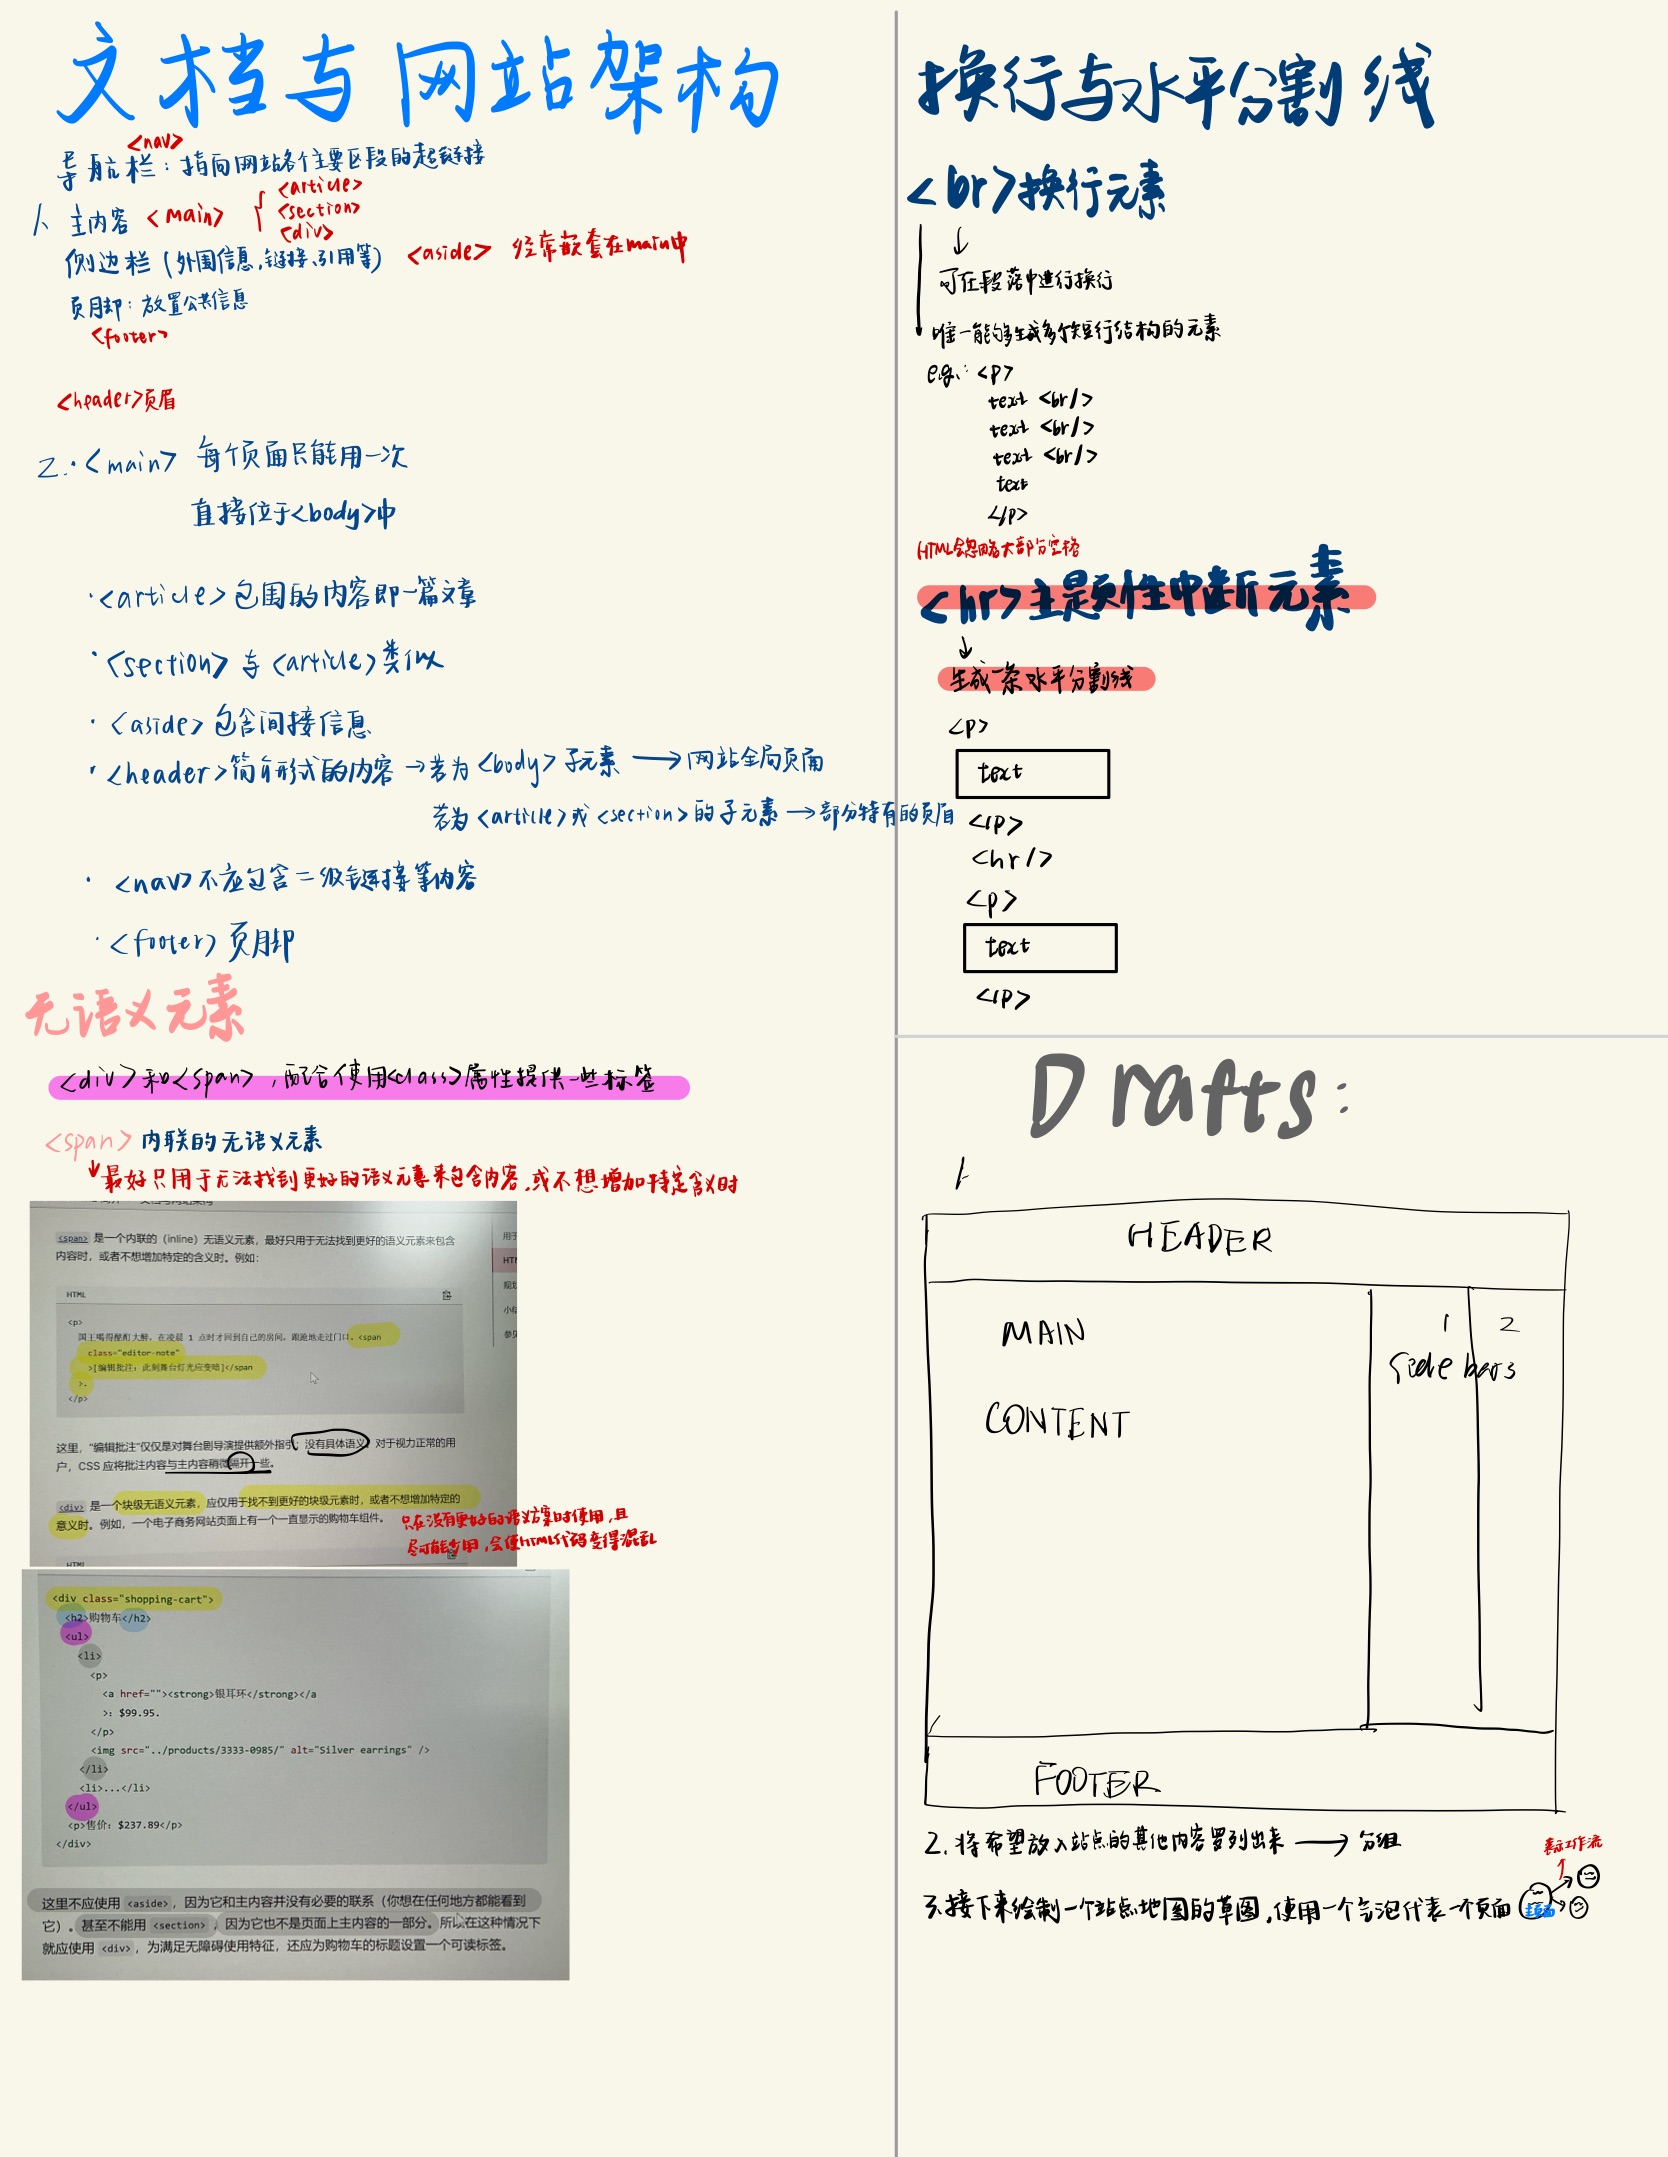 文档与网站架构
<nav>
导航栏：指向网站各个主要区段的超链接
1. 主内容 <main> { <article>
<section>
<div>
侧边栏（外围信息,链接、引用等） <aside> 经常嵌套在main中
页脚：放置公共信息
<footer>
<header>页眉
2. · <main> 每个页面只能用一次
直接位于<body>中
· <article>包围的内容即一篇文章
· <section>与<article>类似
· <aside>包含间接信息
· <header>简介形式的内容 → 若为<body>子元素 → 网站全局页眉
若为<article>或<section>的子元素 → 部分特有的页眉
· <nav>不应包含二级链接等内容
· <footer>页脚
无语义元素
<div>和<span>,配合使用<class>属性提供一些标签
<span>内联的无语义元素
↓最好只用于无法找到更好的语义元素来包含内容,或不想增加特定含义时
<span> 是一个内联的（inline）无语义元素，最好只用于无法找到更好的语义元素来包含
内容时，或者不想增加特定的含义时。例如：
HTML
<p>
国王喝得酩酊大醉，在凌晨 1 点时才回到自己的房间，踉跄地走过门口。<span
class="editor-note"
>[编辑批注：此刻舞台灯光应变暗]</span
>.
</p>
这里，“编辑批注”仅仅是对舞台剧导演提供额外指引；没有具体语义。对于视力正常的用
户，CSS 应将批注内容与主内容稍微隔开一些。
<div> 是一个块级无语义元素，应仅用于找不到更好的块级元素时，或者不想增加特定的
意义时。例如，一个电子商务网站页面上有一个一直显示的购物车组件。
只在没有更好的语义方案时使用,且
尽可能少用,会使html代码变得混乱
HTML
<div class="shopping-cart">
<h2>购物车</h2>
<ul>
<li>
<p>
<a href=""><strong>银耳环</strong></a
>：$99.95.
</p>
<img src="../products/3333-0985/" alt="Silver earrings" />
</li>
<li>...</li>
</ul>
<p>售价：$237.89</p>
</div>
这里不应使用 <aside>，因为它和主内容并没有必要的联系（你想在任何地方都能看到
它）。甚至不能用 <section>，因为它也不是页面上主内容的一部分。所以在这种情况下
就应使用 <div>，为满足无障碍使用特征，还应为购物车的标题设置一个可读标签。
换行与水平分割线
<br>换行元素
可在段落中进行换行
唯一能够生成多个短行结构的元素
e.g.: <p>
text <br/>
text <br/>
text <br/>
text
</p>
HTML会忽略大部分空格
<hr>主题性中断元素
生成一条水平分割线
<p>
text
</p>
<hr/>
<p>
text
</p>
Drafts:
1.
HEADER
MAIN
1 2
Side bars
CONTENT
FOOTER
2. 将希望放入站点的其他内容罗列出来 → 分组
3. 接下来绘制一个站点地图的草图,使用一个气泡代表一个页面
表示工作流
主页面